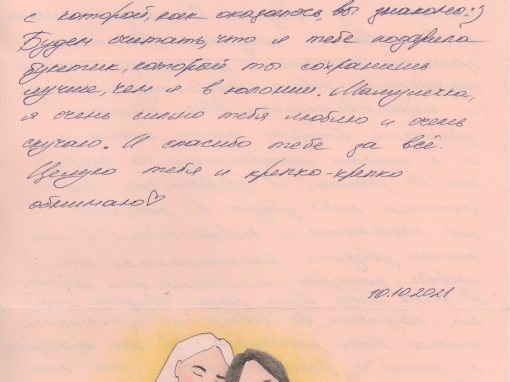 с которой, как оказалось, вы знакомы :)
Будем считать, что я тебе подарила
букетик, который ты сохранишь
лучше, чем я в колонии. Мамулечка,
я очень сильно тебя люблю и очень
скучаю. И спасибо тебе за всё.
Целую тебя и крепко-крепко
обнимаю♡
10.10.2021